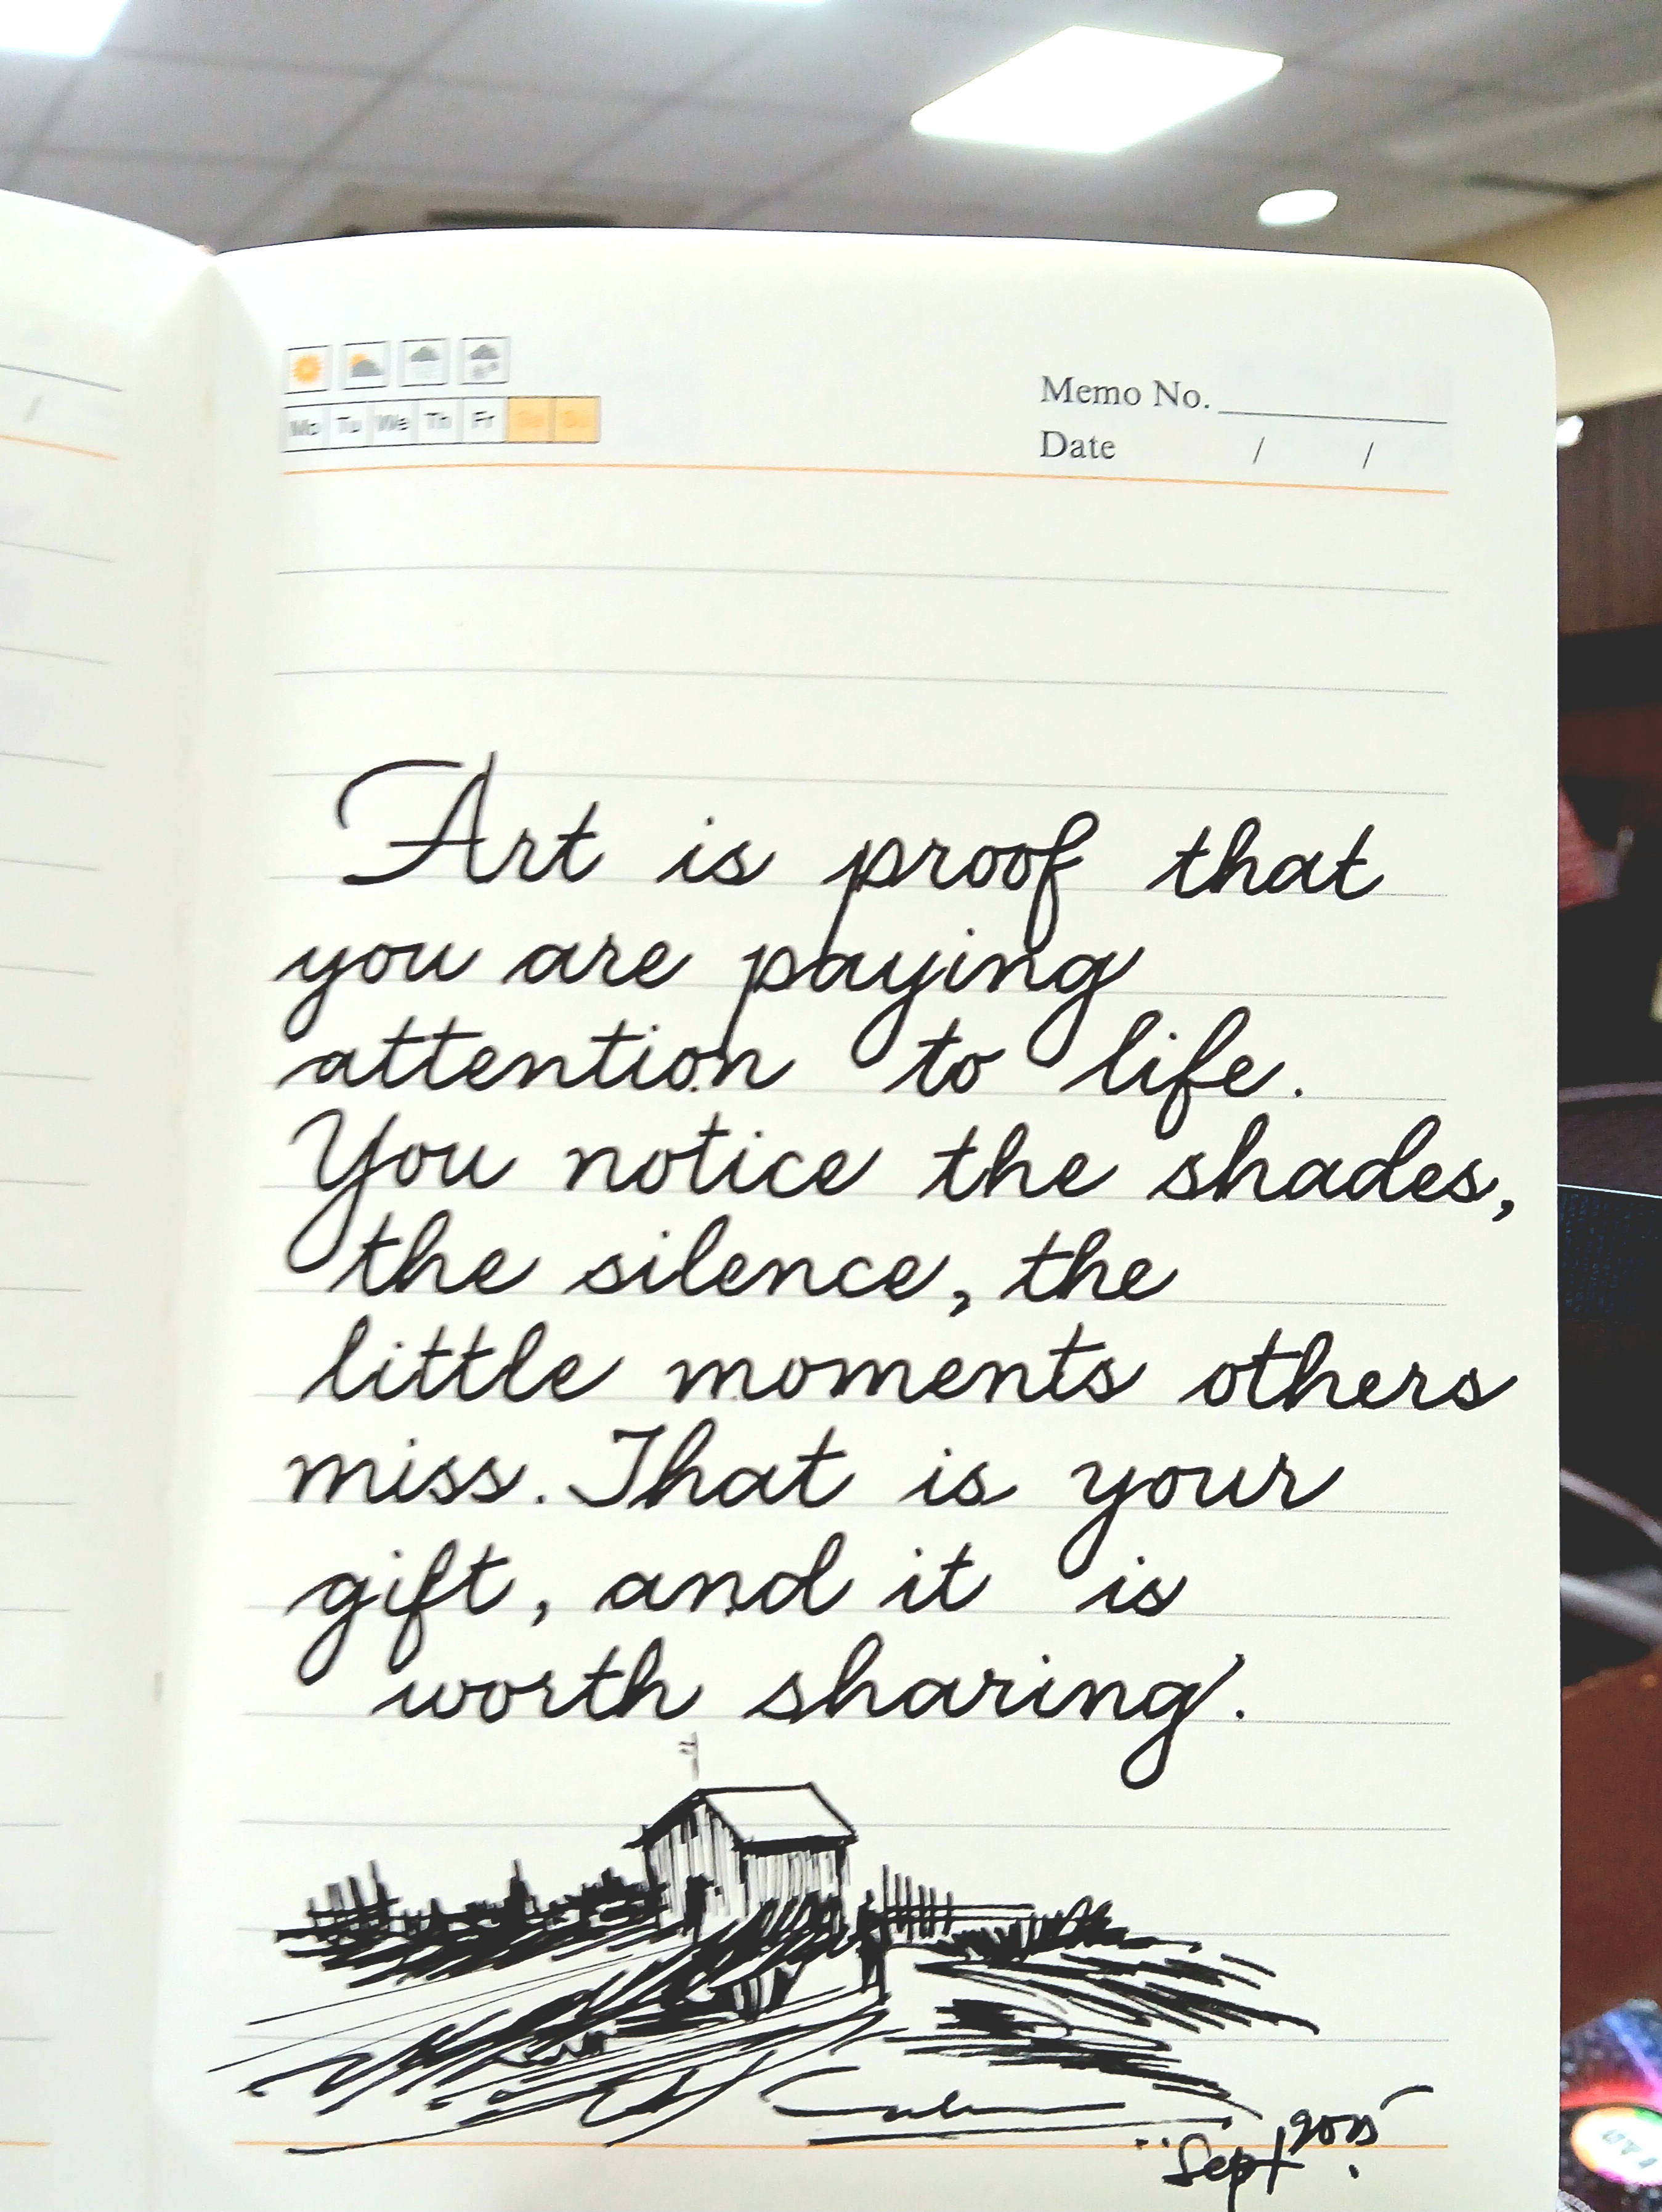 Mo Tu We Th Fr Sa Su
Memo No.
Date / /
Art is proof that
you are paying
attention to life.
You notice the shades,
the silence, the
little moments others
miss. That is your
gift, and it is
worth sharing.
Sept